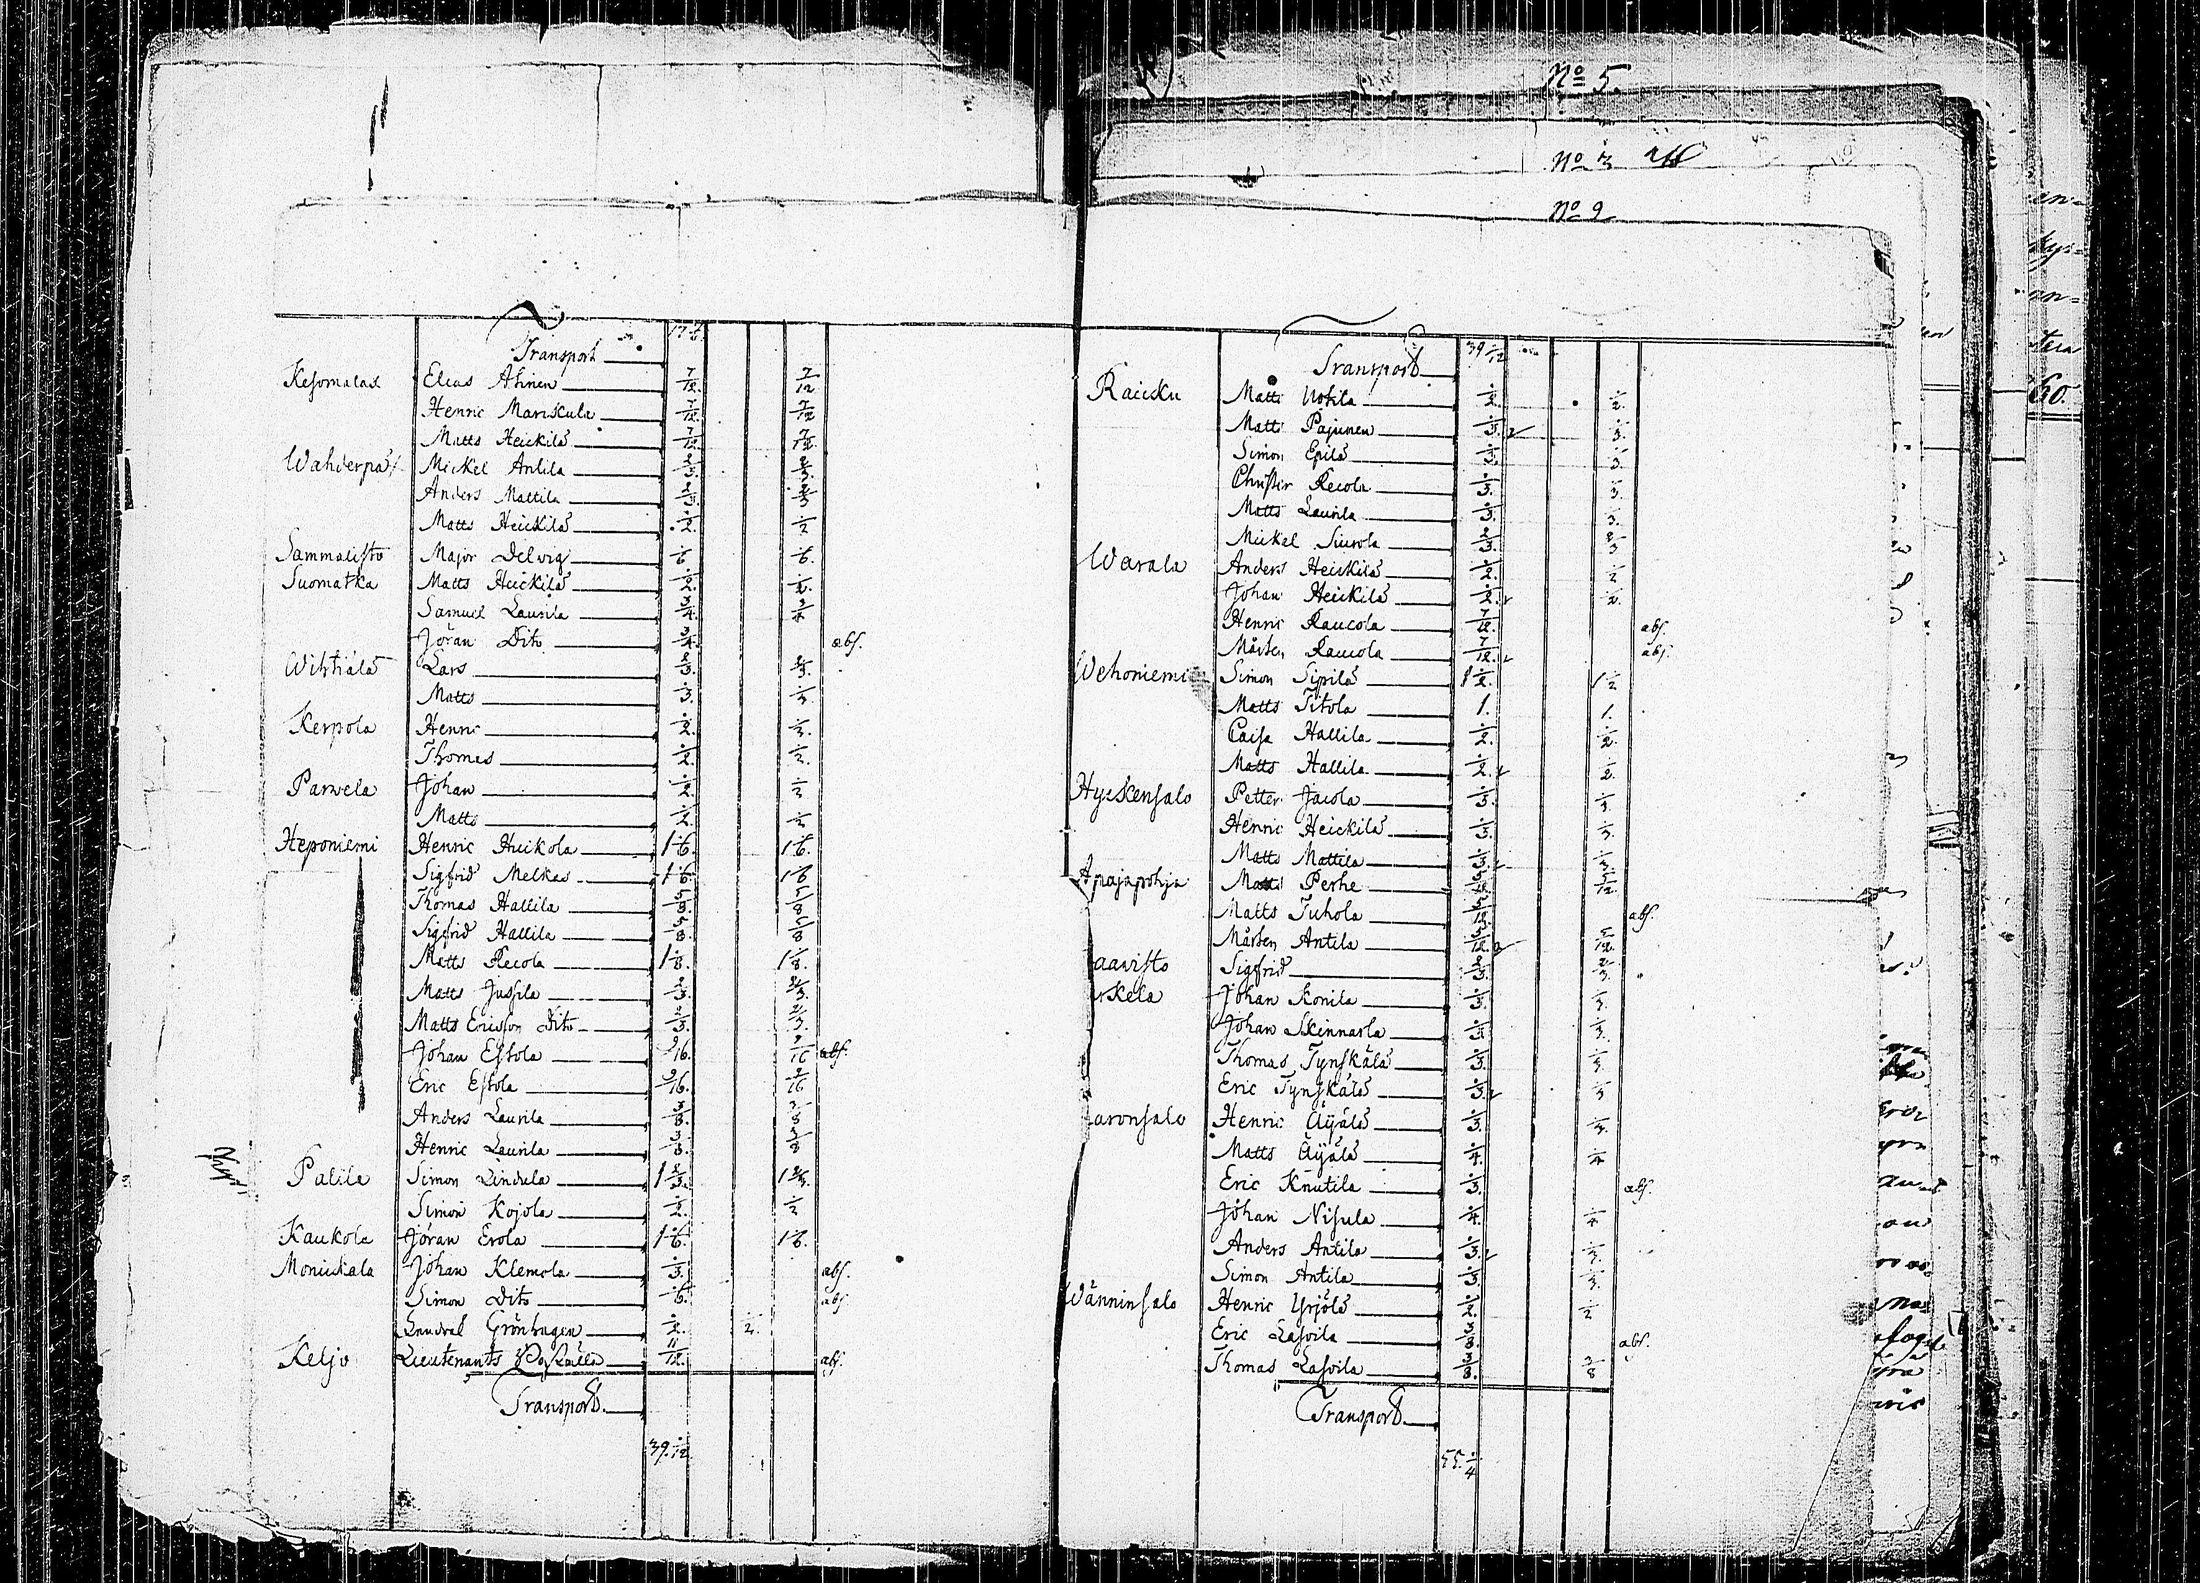 Transport 17 1/6
Kesomalax Elias Ahinen 7/12. 7/12
Henric Mariskula 7/12. 7/12
Matts Heickilä 7/12. 7/12.
Wahderpä Mickel Antila 2/3. 2/3.
Anders Mattila 2/3. 2/3
Matts Heickilä 1/2. 1/2
Sammalisto Major Delvig 1/6 1/6.
Suomatka Matts Heickilä 1/2. 1/2.
Samuel Laurila 3/4. 3/4
Jöran Dito 3/4. abs.
Wihtiälä Lars 2/3. 2/3.
Matts 1/3. 1/3.
Kerpola Henric 1/2. 1/2.
Thomas 1/2. 1/2.
Parwela Johan 1/2. 1/2
Matts 1/2. 1/2
Heponiemi Henric Huikola 1 1/6. 1 1/6.
Sigfrid Melkas 1 1/6. 1 1/6
Thomas Hallila 5/8. 5/8
Sigfrid Hallila 5/8. 5/8
Matts Recola 1 1/8. 1 1/8.
Matts Jussila 2/3. 2/3.
Matts Ericsson Dito 2/3. 2/3.
Johan Estola 9/16. 9/16 abs.
Eric Estola 9/16. 9/16
Anders Laurila 3/8. 3/8
Henric Laurila 3/8. 3/8
Palila Simon Lindula 1 2/3. 1 2/3.
Simon Kojola 1/2. 1/2
Kaukola Jöran Erola 1 1/6. 1 1/6.
Moniskala Johan Klemola 1/3. abs.
Simon Dito 1/6. abs.
Grönhagen 1/2. 1/2.
Keljo Lieutenants 11/12. abs.
Transport
39. 1/12.
No 5.
No 3
No 9
Transport 39 1/12
Raicsku Matts Uotila 1/2. 1/2.
Matts Pajunen 1/3. 1/3.
Simon Epilä 1/3. 1/3.
Christer Recola 1/3. 1/3.
Matts Laurila 1/3. 1/3.
Mickel Siurola 2/3. 2/3
Warala Anders Heickilä 1/2. 1/2
Johan Heickilä 1/2. 1/2.
Henric Raucola 7/12. abs.
Mårten Raucola 7/12. abs.
Wehoniemi Simon Sipilä 1 1/2. 1 1/2
Matts Titola 1. 1.
Caisa Hallila 1/2. 1/2.
Matts Hallila 1/2. 1/2.
Hyckensalo Petter Jacola 1/3. 1/3.
Henric Heickilä 1/3. 1/3.
Matts Mattila 1/3. 1/3.
Apajapohja Matts Perhe 5/12. 5/12
Matts Tuhola 5/12. abs.
Mårten Antila 5/12. 5/12.
aavisto Sigfrid 2/3. 2/3.
rkela Johan Konila 1/3. 1/3.
Johan Skinnarla 1/3. 1/3.
Thomas Tynskälä 1/3. 1/3
Eric Tynskälä 1/3. 1/3
aronsalo Henric Äyälä 1/3. 1/3.
Matts Äyälä 1/4. 1/4
Eric Knutila 1/3. abs.
Johan Nisula 1/4. 1/4
Anders Antila 1/3. 1/3.
Simon Antila 1/3. 1/3.
Wänninsalo Henric Yrjölä 1/2. 1/2
Eric Lassila 3/8. abs.
Thomas Lassila 3/8. 3/8
Transport
55. 1/4